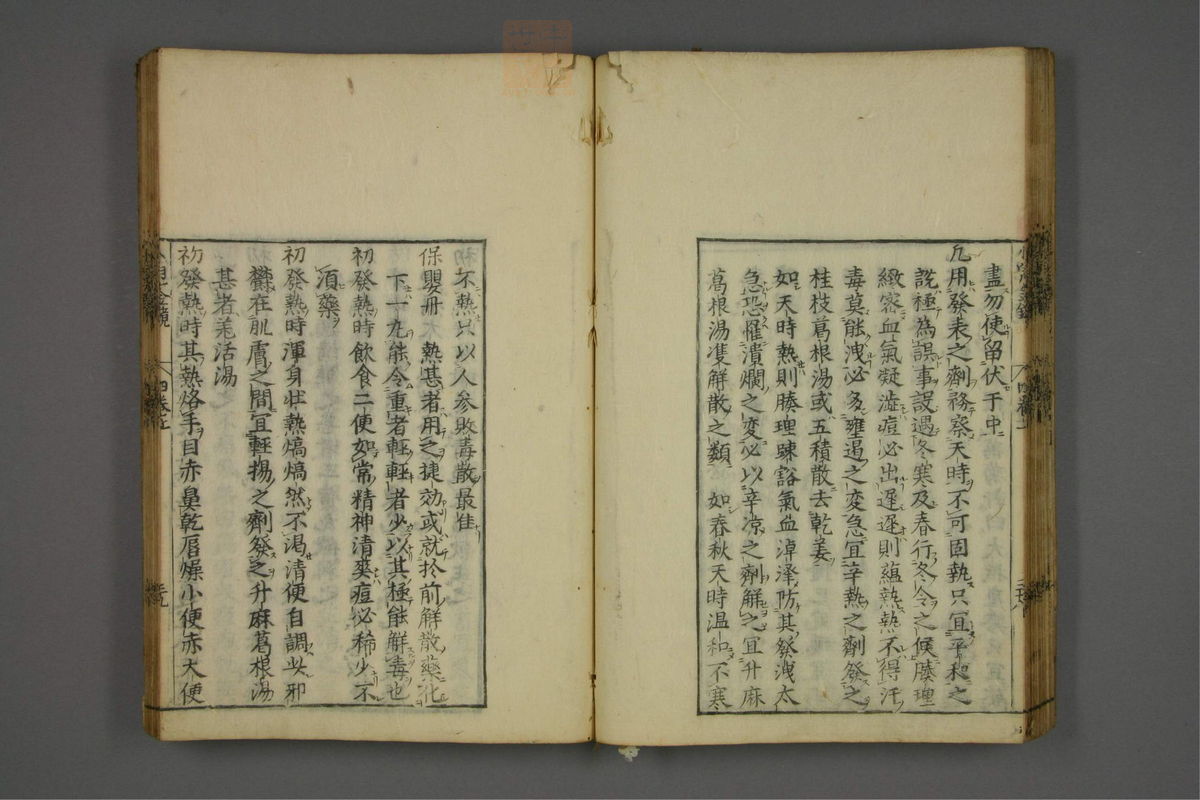 盡勿使留伏于中
凡用發表之劑務察天時不可固執只冝平和之
說極為誤事設遇冬寒及春行冬令之候腠理
緻宻血氣凝澁痘必出遲遲則蘊熱熱不得汗
毒莫能洩必多壅遏之変急冝辛熱之劑發之
桂枝葛根湯或五積散去乾姜
如天時熱則腠理踈豁氣血淖澤防其發洩太
急恐罹潰爛之変必以辛凉之劑解之冝升麻
葛根湯雙解散之類　如春秋天時温和不寒
不熱只以人參敗毒散最佳
保嬰丹　熱甚者用之捷効或就扵前解散藥化
下一丸能令重者輕輕者少以其極能解毒也
初發熱時飲食二便如常精神清爽痘必稀少不
須藥
初發熱時渾身壮熱熇熇然不渴清便自調此邪
欝在肌膚之間冝輕揚之劑發之升麻葛根湯
甚者羗活湯
初發熱時其熱烙手目赤鼻乾唇燥小便赤大便